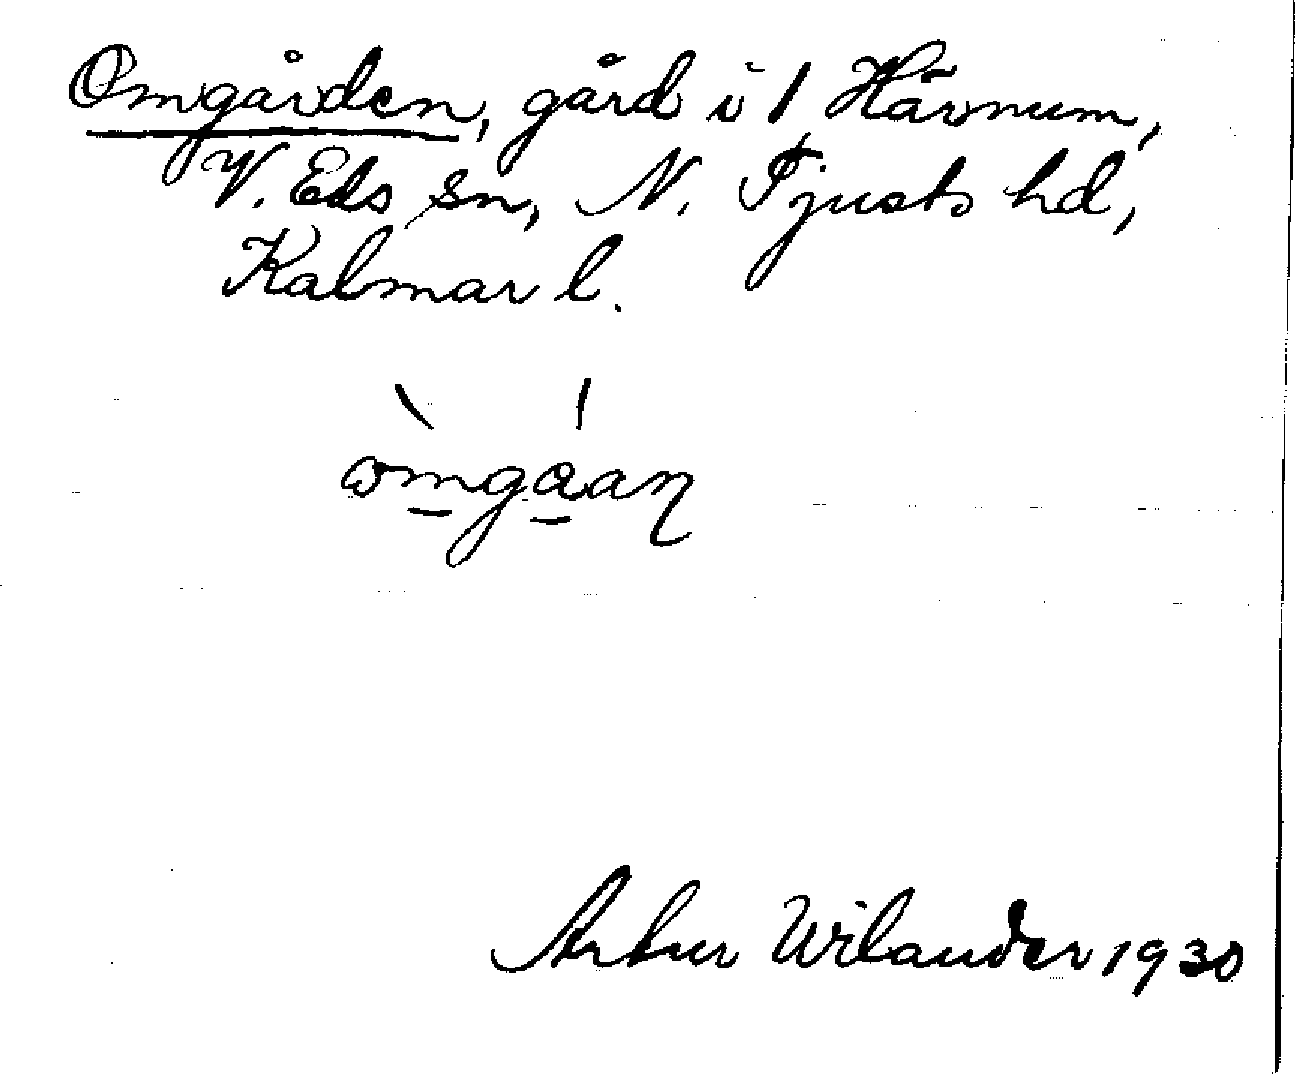 Omgården, gård i 1 Hävnum,
V. Eds sn, N. Tjusts hd,
Kalmar l.
Artur Wilander 1930